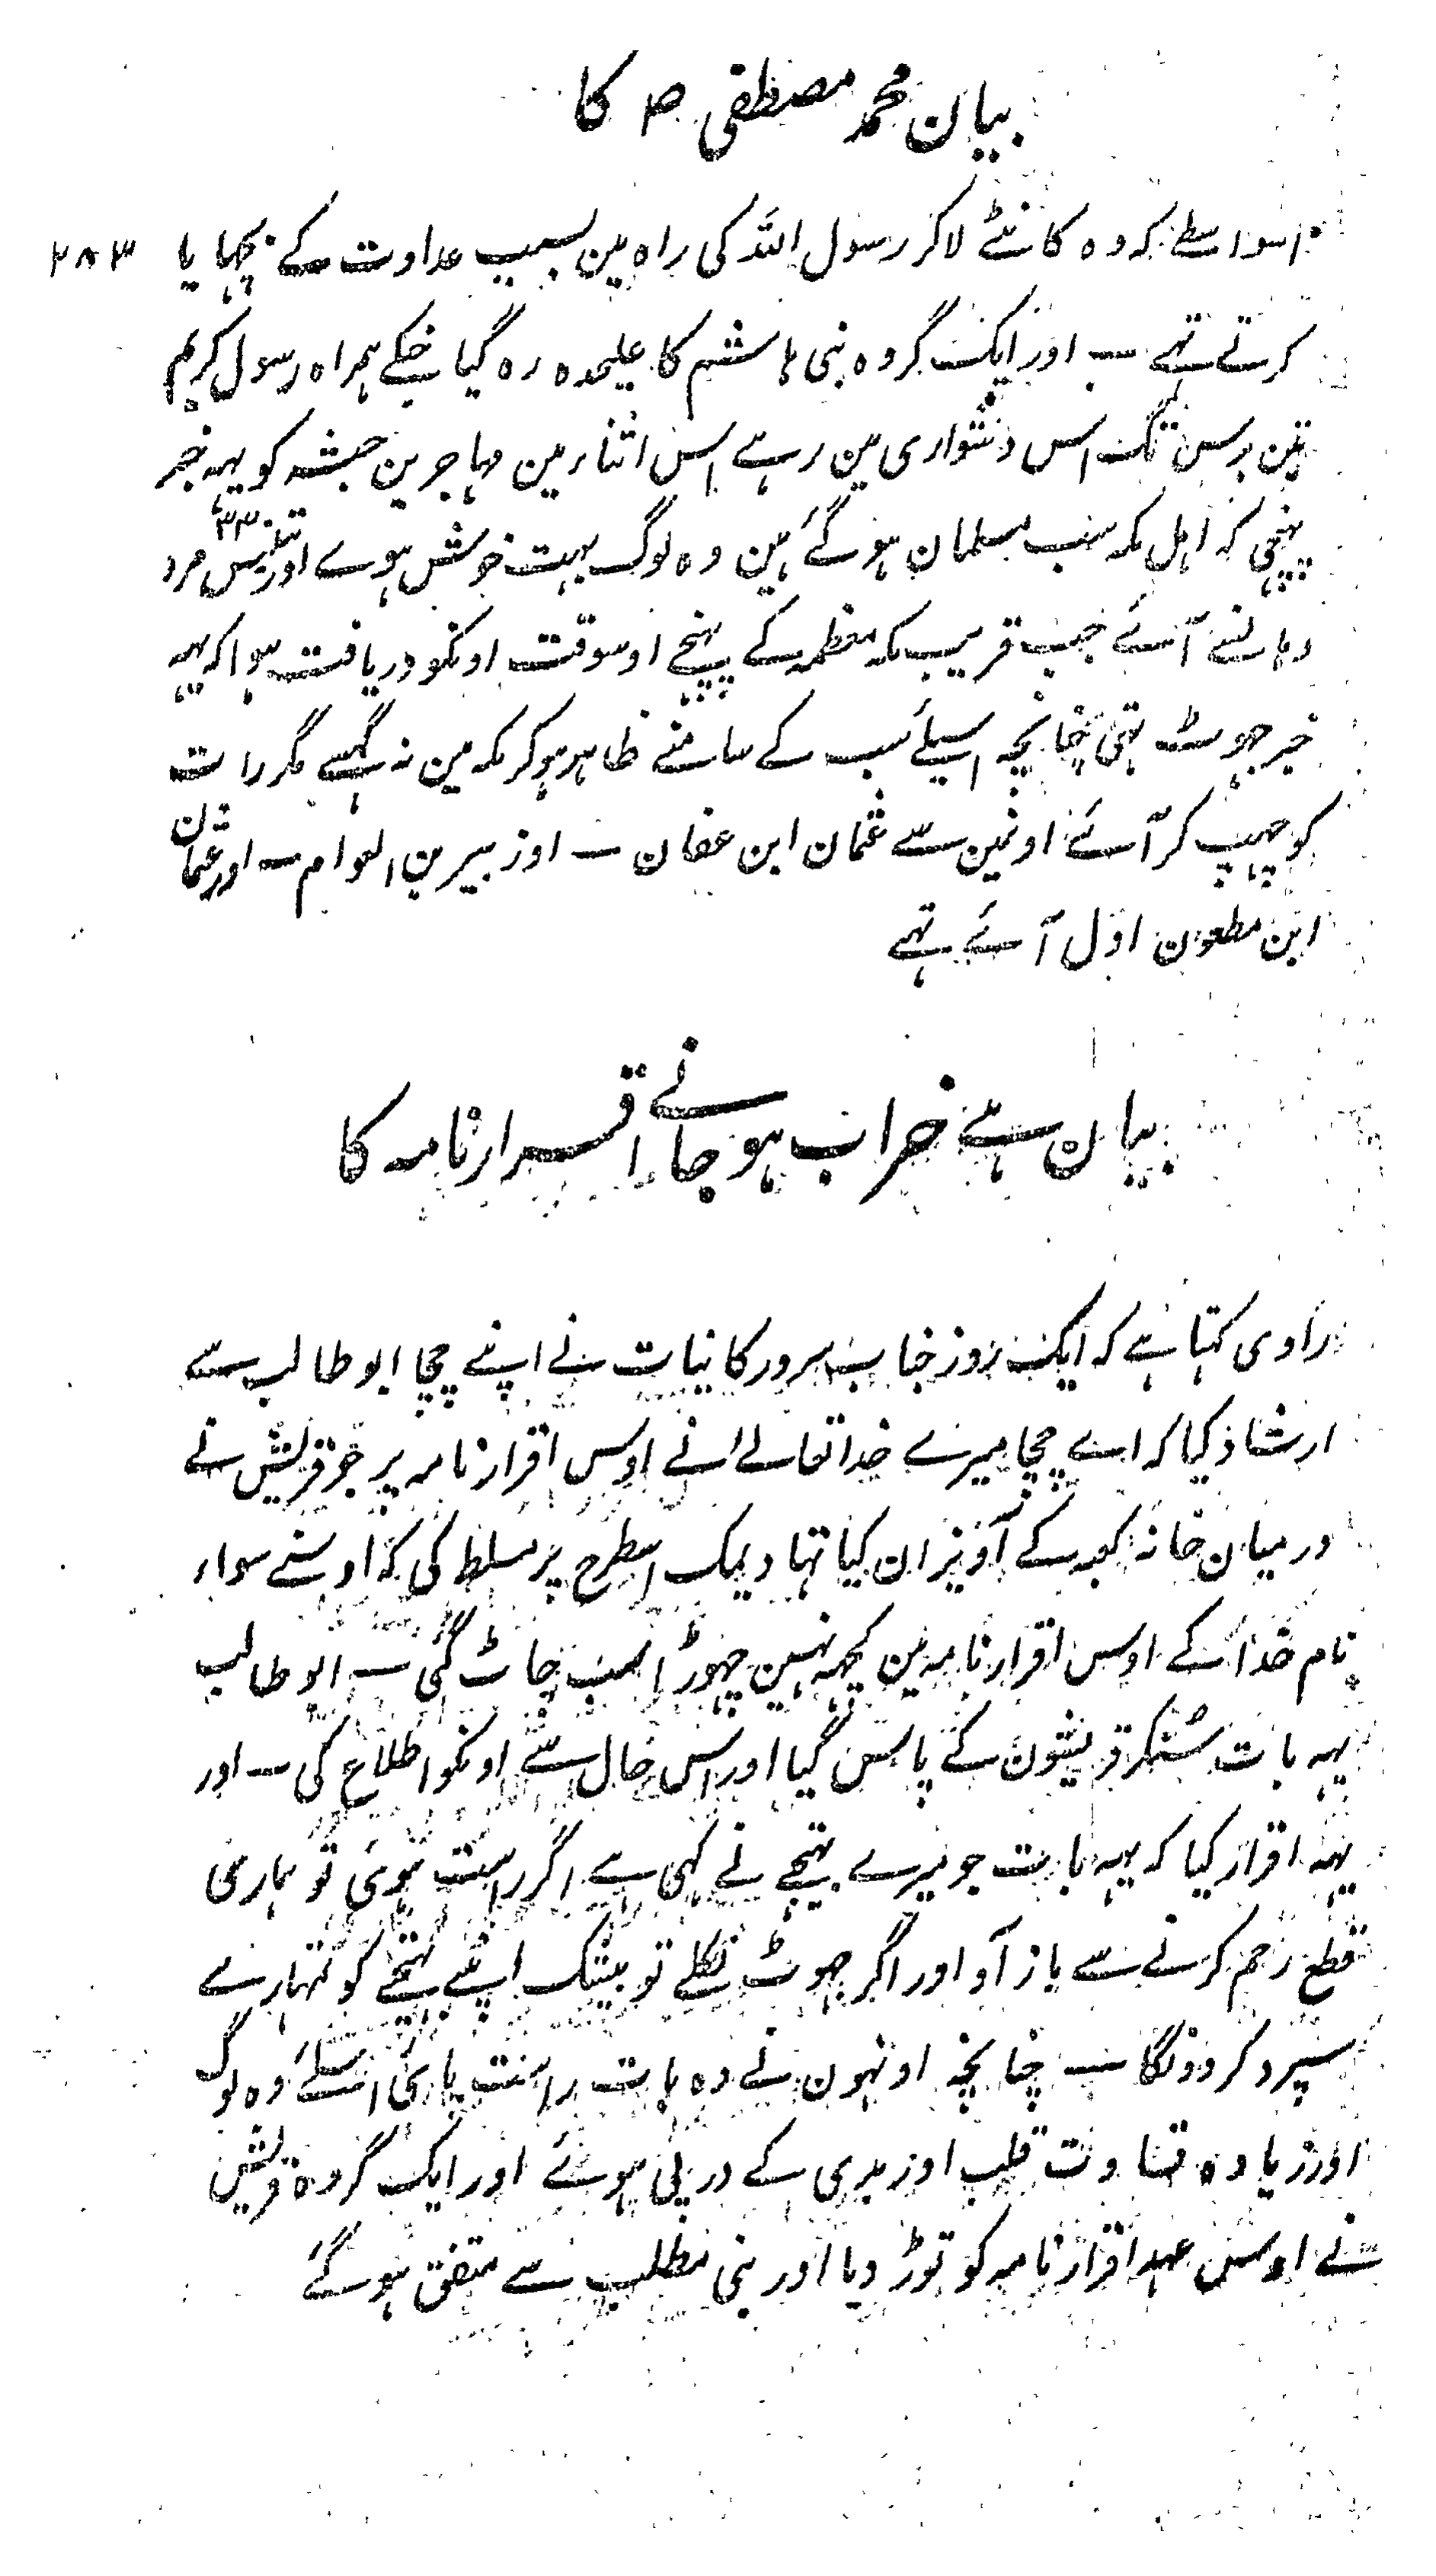 بیان محمد مصطفی ص کا
اسواسطے کہ وہ کانٹے لاکر رسول اللہ کی راہ مین بسبب عداوت کے بچہایا ۲۸۳
کرتے تہے ۔ اور ایک گروہ بنی ہاشم کا علیحدہ رہ گیا جنکے ہمراہ رسول کریم
تین برس تک اس دشواری مین رہے اس اثناء مین مہاجرین حبشہ کو یہہ خبر
پہنچی کہ اہل مکہ سب مسلمان ہو گئے ہین وہ لوگ بہت خوش ہوے اور تینتیس ۳۳ مرد
وہانسے آئے جب قریب مکہ معظمہ کے پہنچے اوسوقت اونکو دریافت ہوا کہ یہہ
خبر جہوٹ تہی چنانچہ اسیلئے سب کے سامنے ظاہر ہوکر مکہ مین نہ گہسے مگر رات
کو چہپ کر آئے اونمین سے عثمان ابن عفان ۔ اور زبیر بن العوام ۔ اور عثمان
ابن مطعون اول آئے تہے
بیان ہے خراب ہو جانے اقرار نامہ کا
راوی کہتا ہے کہ ایک روز جناب سرور کائنات نے اپنے چچا ابو طالب سے
ارشاد کیا کہ اے چچا میرے خدا تعالے نے اوس اقرار نامہ پر جو قریش نے
درمیان خانہ کعبہ کے آویزان کیا تہا دیمک اسطرح پر مسلط کی کہ اوسنے سواء
نام خدا کے اوس اقرار نامہ مین کچہہ نہین چہوڑا سب چاٹ گئی ۔ ابو طالب
یہہ بات سُنکر قریشون کے پاس گیا اور اس حال سے اونکو اطلاع کی ۔ اور
یہہ اقرار کیا کہ یہہ بات جو میرے بہتیجے نے کہی ہے اگر راست ہوئی تو ہماری
قطع رحم کرنے سے باز آو اور اگر جہوٹ نکلے تو بیشک اپنے بہتیجے کو تمہارے
سپرد کر دونگا ۔ چنانچہ اونہون نے وہ بات راست پائی اسلئے وہ لوگ
اور زیادہ قساوت قلب اور بدی کے درپی ہوئے اور ایک گروہ قریش
نے اوس عہد اقرار نامہ کو توڑ دیا اور بنی مطلب سے متفق ہو گئے